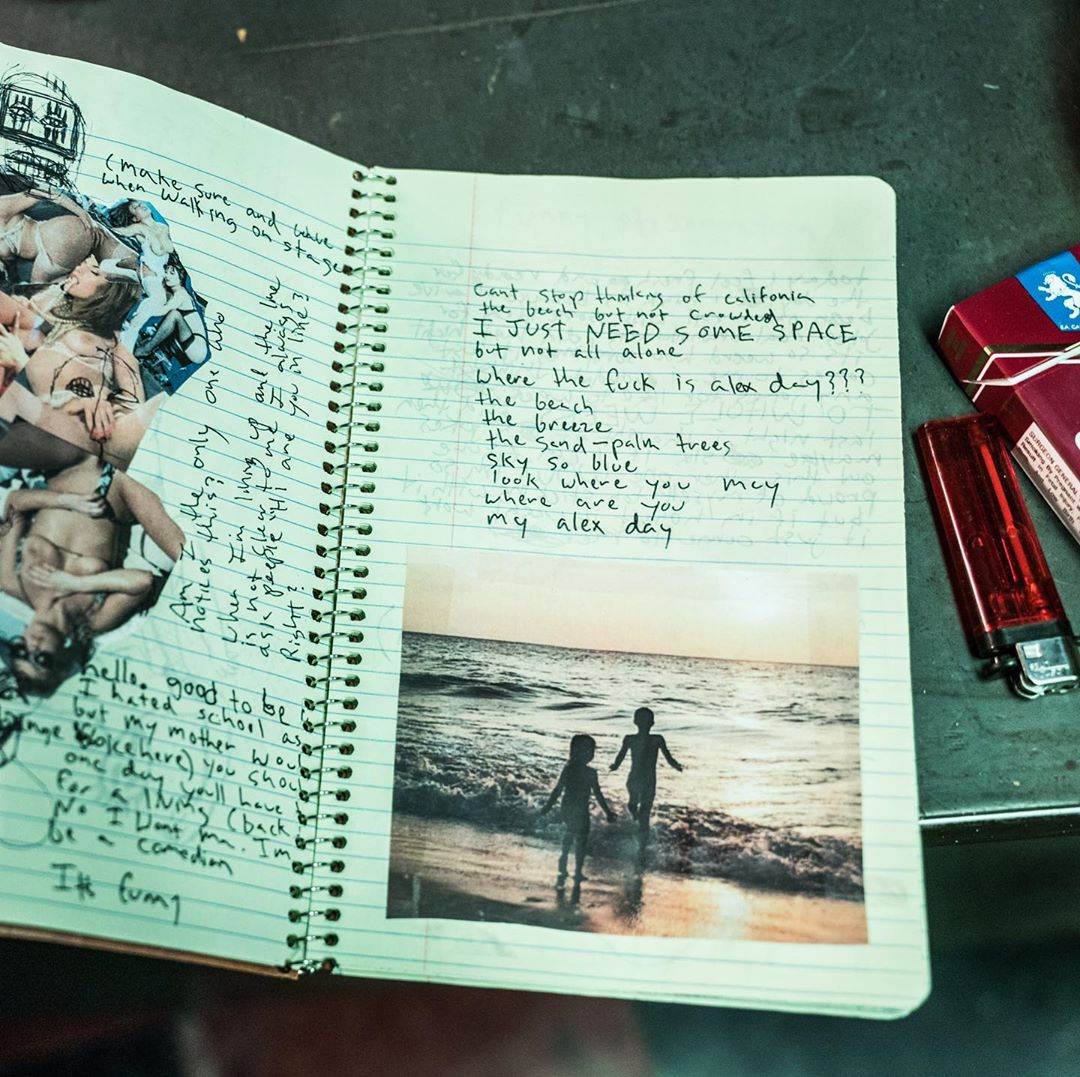 (make sure and wave
when walking on stage
Am I the only one who
notices this?
when I'm lining up and the line
is not clear to me I always
ask people "Hi are you in line?
Right?
hello. good to be
I hated school as
but my mother would
voice here) you should
one day you'll have
for a living (back
No I want ma. I'm
be a comedian
Its funny
Cant stop thinking of califonia
the beach but not crowded
I JUST NEED SOME SPACE
but not all alone
where the fuck is alex day???
the beach
the breeze
the sand-palm trees
sky so blue
look where you may
where are you
my alex day
SURGEON GENERAL
Smoking By Pregnant